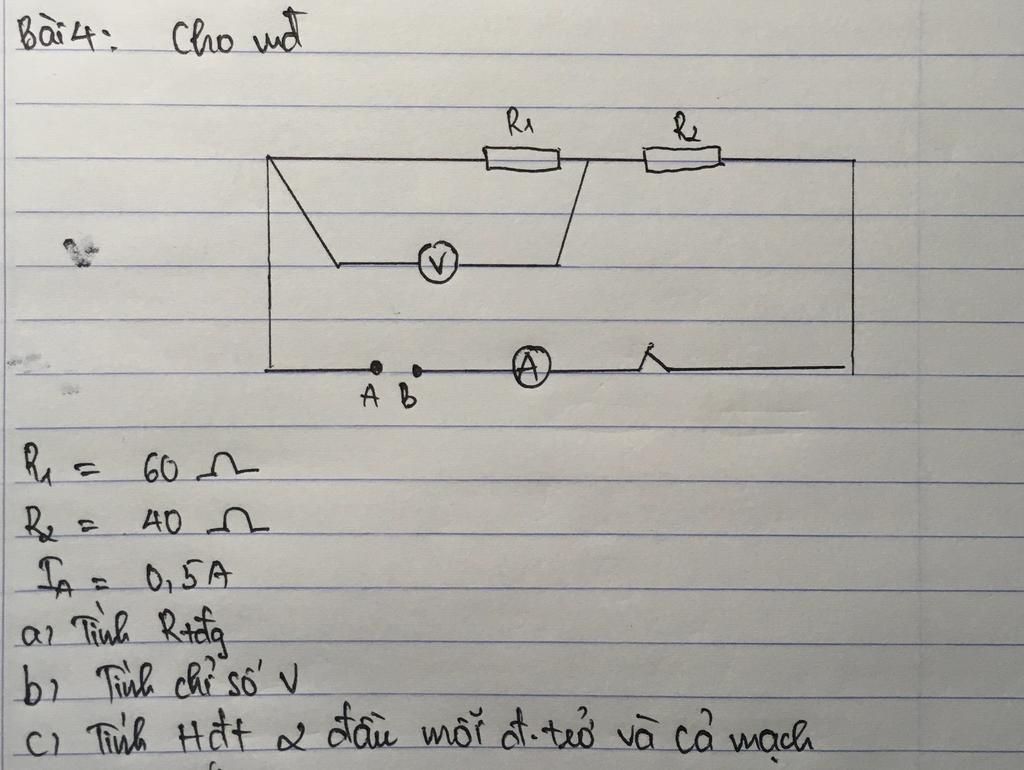 Bài 4: Cho mđ
R1 R2
V
A
A B
R1 = 60 Ω
R2 = 40 Ω
IA = 0,5A
a) Tính Rtđg
b) Tính chỉ số V
c) Tính Hđt 2 đầu mỗi đ.trở và cả mạch